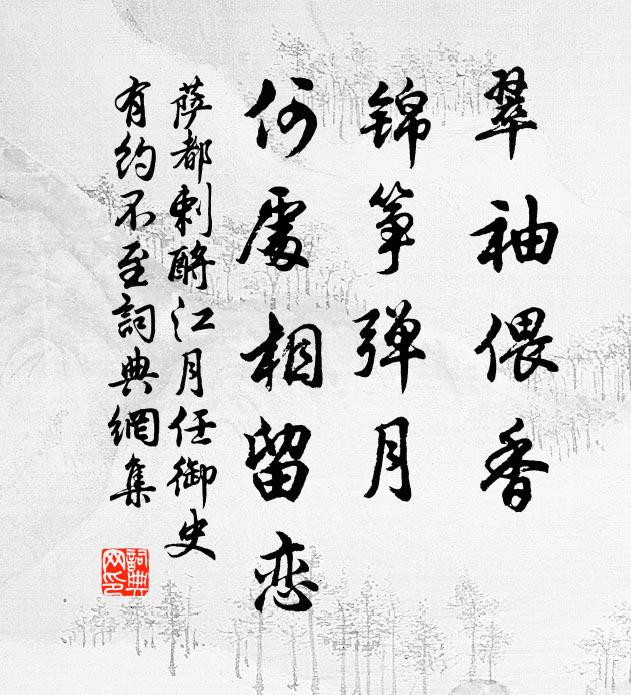 翠袖偎香
锦筝弹月
何處相留恋
萨都剌酹江月任御史
有约不至詞典網集
詞典网印